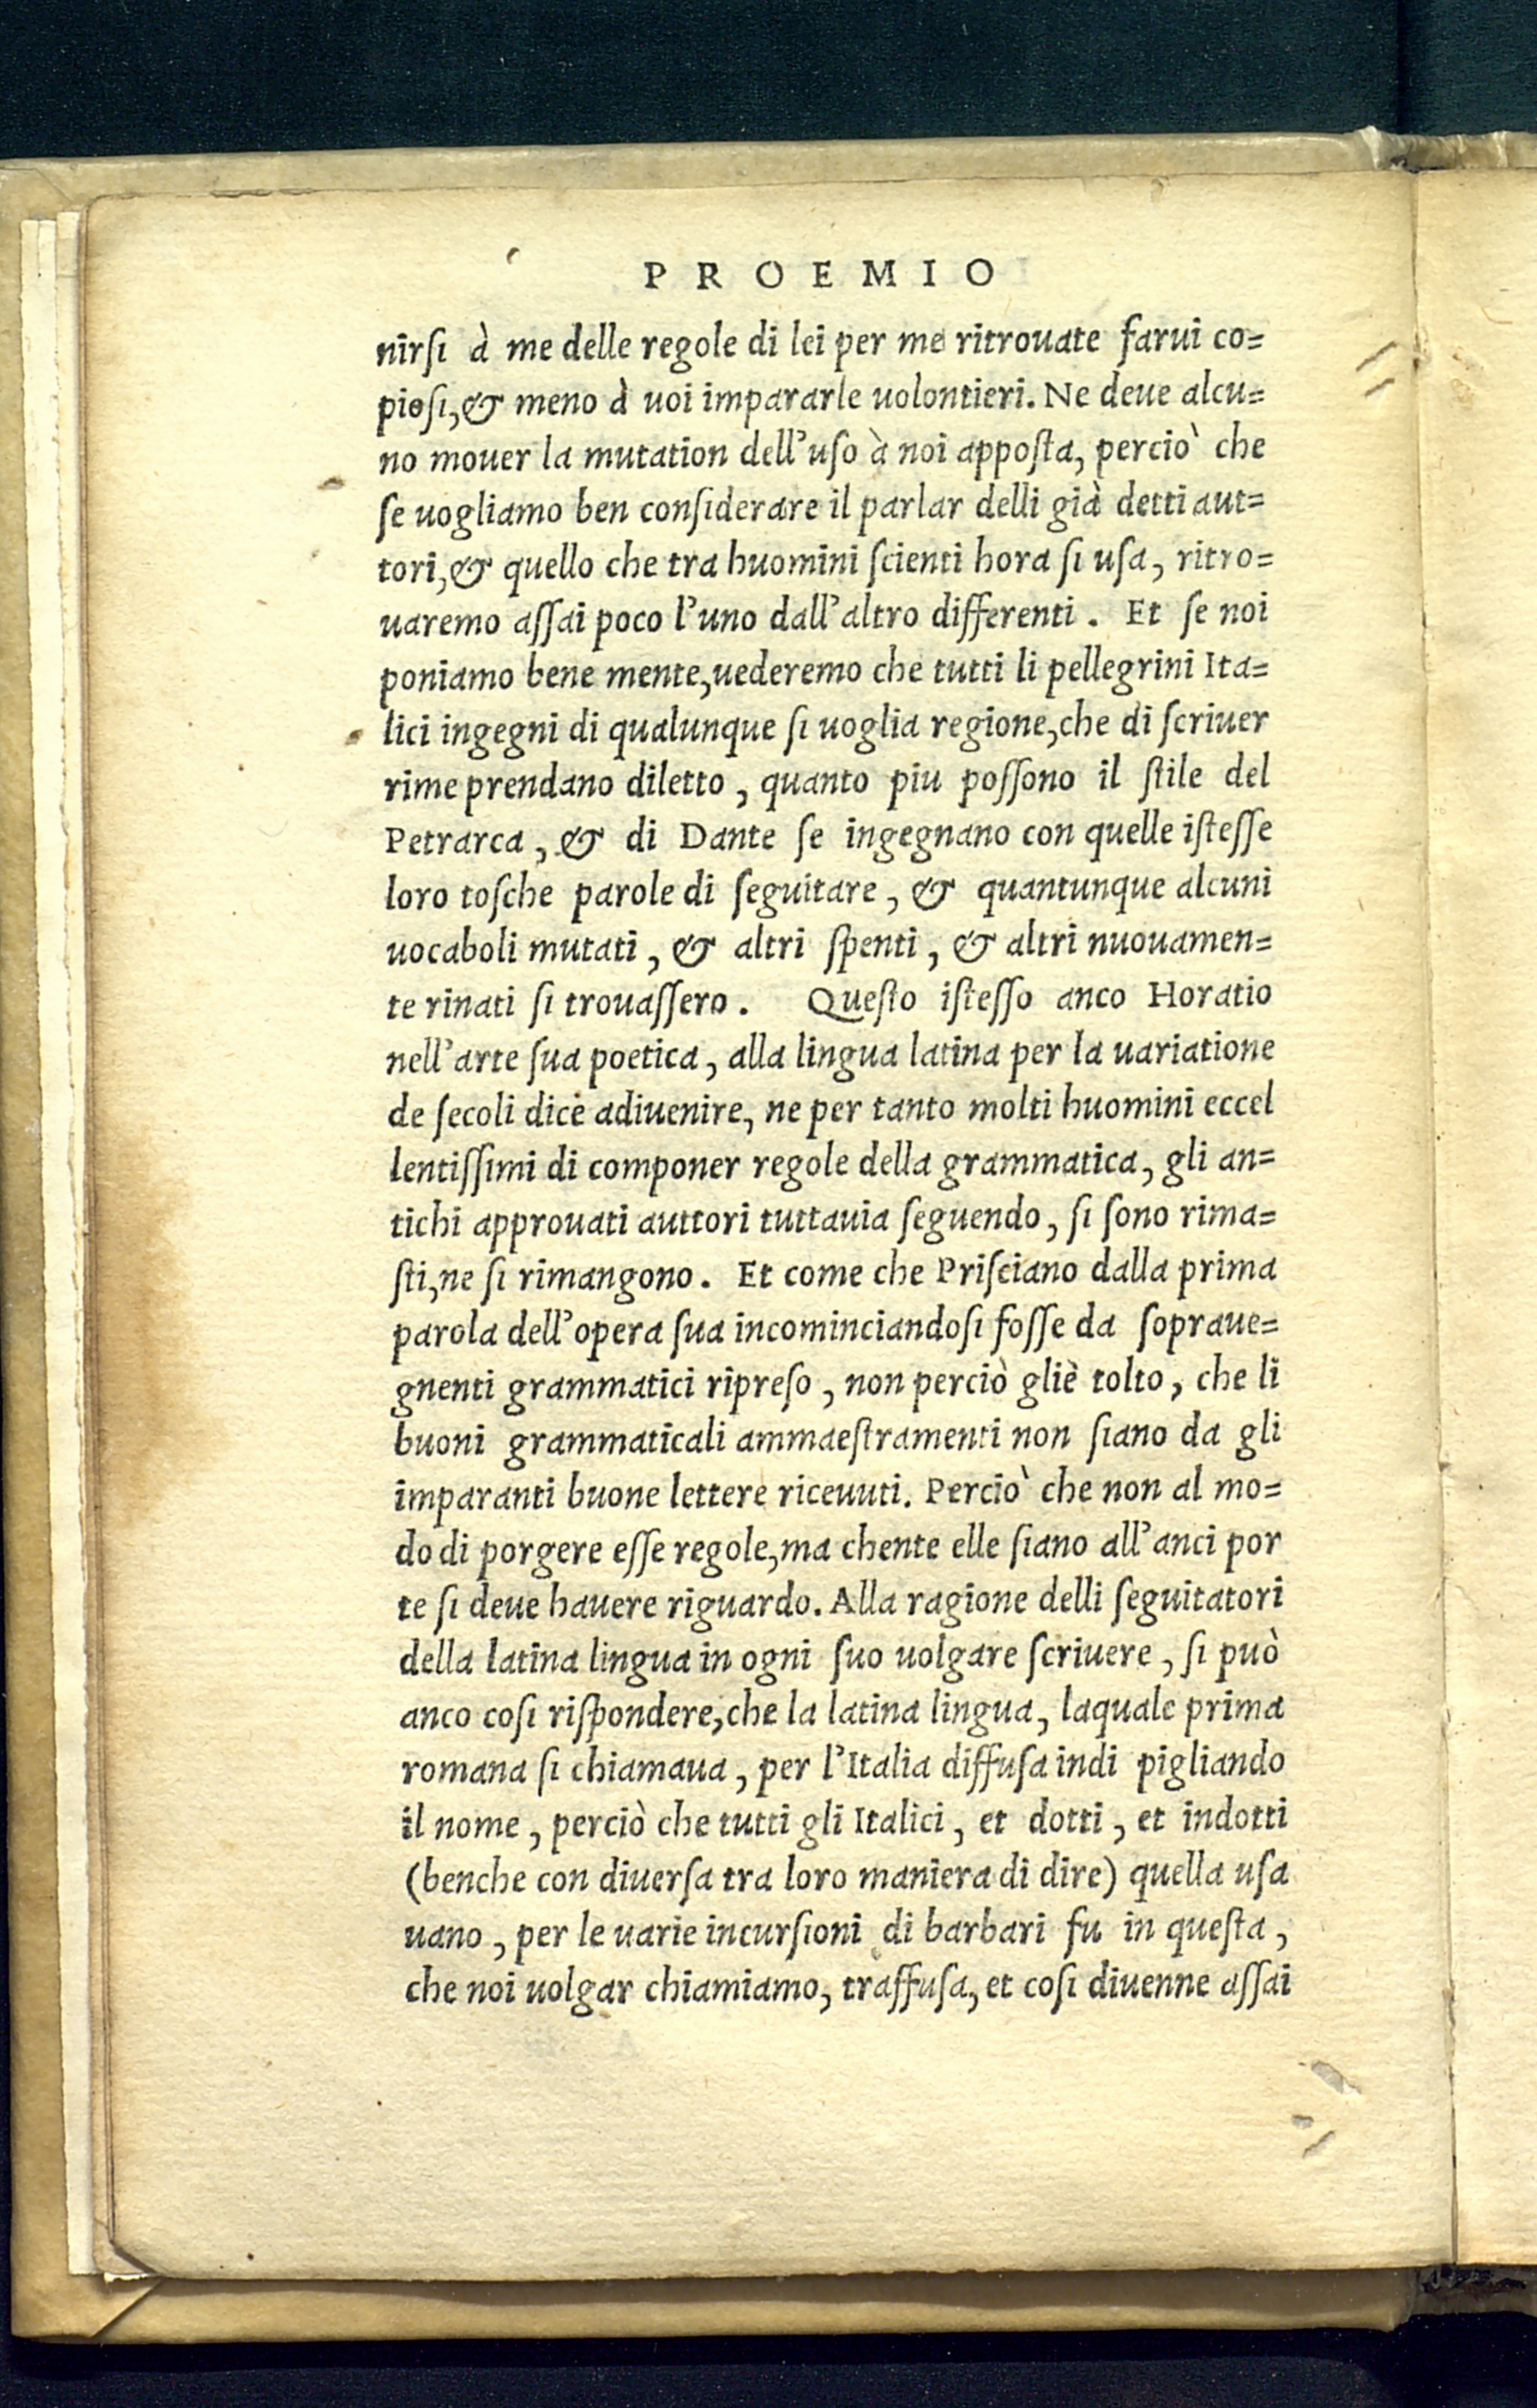 PROEMIO
nirſi à me delle regole di lei per me ritrouate farui co=
pioſi, & meno à uoi impararle uolontieri. Ne deue alcu=
no mouer la mutation dell'uſo à noi appoſta, perciò che
ſe uogliamo ben conſiderare il parlar delli già detti aut=
tori, & quello che tra huomini ſcienti hora ſi uſa, ritro=
uaremo aſſai poco l'uno dall'altro differenti. Et ſe noi
poniamo bene mente, uederemo che tutti li pellegrini Ita=
lici ingegni di qualunque ſi uoglia regione, che di ſcriuer
rime prendano diletto, quanto piu poſſono il ſtile del
Petrarca, & di Dante ſe ingegnano con quelle iſteſſe
loro toſche parole di ſeguitare, & quantunque alcuni
uocaboli mutati, & altri ſpenti, & altri nuouamen=
te rinati ſi trouaſſero. Queſto iſteſſo anco Horatio
nell'arte ſua poetica, alla lingua latina per la uariatione
de ſecoli dice adiuenire, ne per tanto molti huomini eccel
lentiſſimi di componer regole della grammatica, gli an=
tichi approuati auttori tuttauia ſeguendo, ſi ſono rima=
ſti, ne ſi rimangono. Et come che Priſciano dalla prima
parola dell'opera ſua incominciandoſi foſſe da ſopraue=
gnenti grammatici ripreſo, non perciò gliè tolto, che li
buoni grammaticali ammaeſtramenti non ſiano da gli
imparanti buone lettere riceuuti. Perciò che non al mo=
do di porgere eſſe regole, ma chente elle ſiano all'anci por
te ſi deue hauere riguardo. Alla ragione delli ſeguitatori
della latina lingua in ogni ſuo uolgare ſcriuere, ſi può
anco coſi riſpondere, che la latina lingua, laquale prima
romana ſi chiamaua, per l'Italia diffuſa indi pigliando
il nome, perciò che tutti gli Italici, et dotti, et indotti
(benche con diuerſa tra loro maniera di dire) quella uſa
uano, per le uarie incurſioni di barbari fu in queſta,
che noi uolgar chiamiamo, traffuſa, et coſi diuenne aſſai